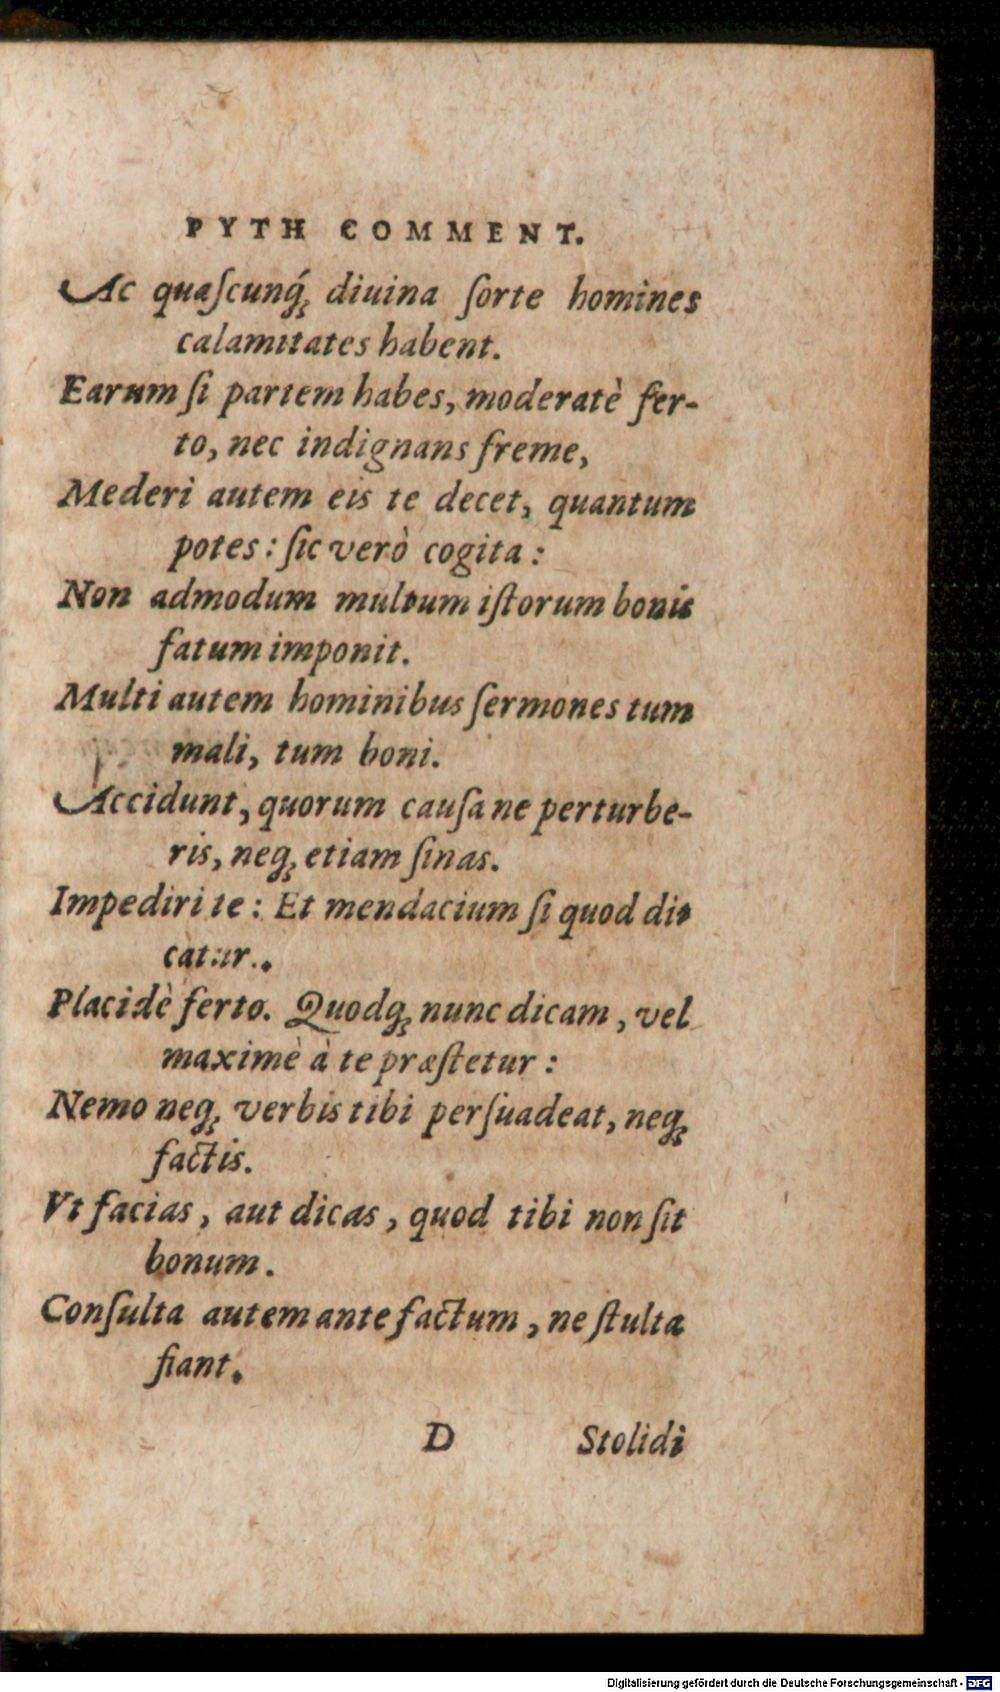 PYTH COMMENT.
Ac quaſcunq́ꝫ diuina ſorte homines
calamitates habent.
Earum ſi partem habes, moderatè fer-
to, nec indignans freme,
Mederi autem eis te decet, quantum
potes: ſic verò cogita:
Non admodum multum iſtorum bonis
fatum imponit.
Multi autem hominibus ſermones tum
mali, tum boni.
Accidunt, quorum cauſa ne perturbe-
ris, neqꝫ etiam ſinas.
Impediri te: Et mendacium ſi quod di-
catur..
Placidè ferto. Quodqꝫ nunc dicam, vel
maximè à te præſtetur:
Nemo neqꝫ verbis tibi perſuadeat, neqꝫ
factis.
Vt facias, aut dicas, quod tibi non ſit
bonum.
Conſulta autem ante factum, ne ſtulta
fiant.
D Stolidi
Digitalisierung gefördert durch die Deutsche Forschungsgemeinschaft - DFG